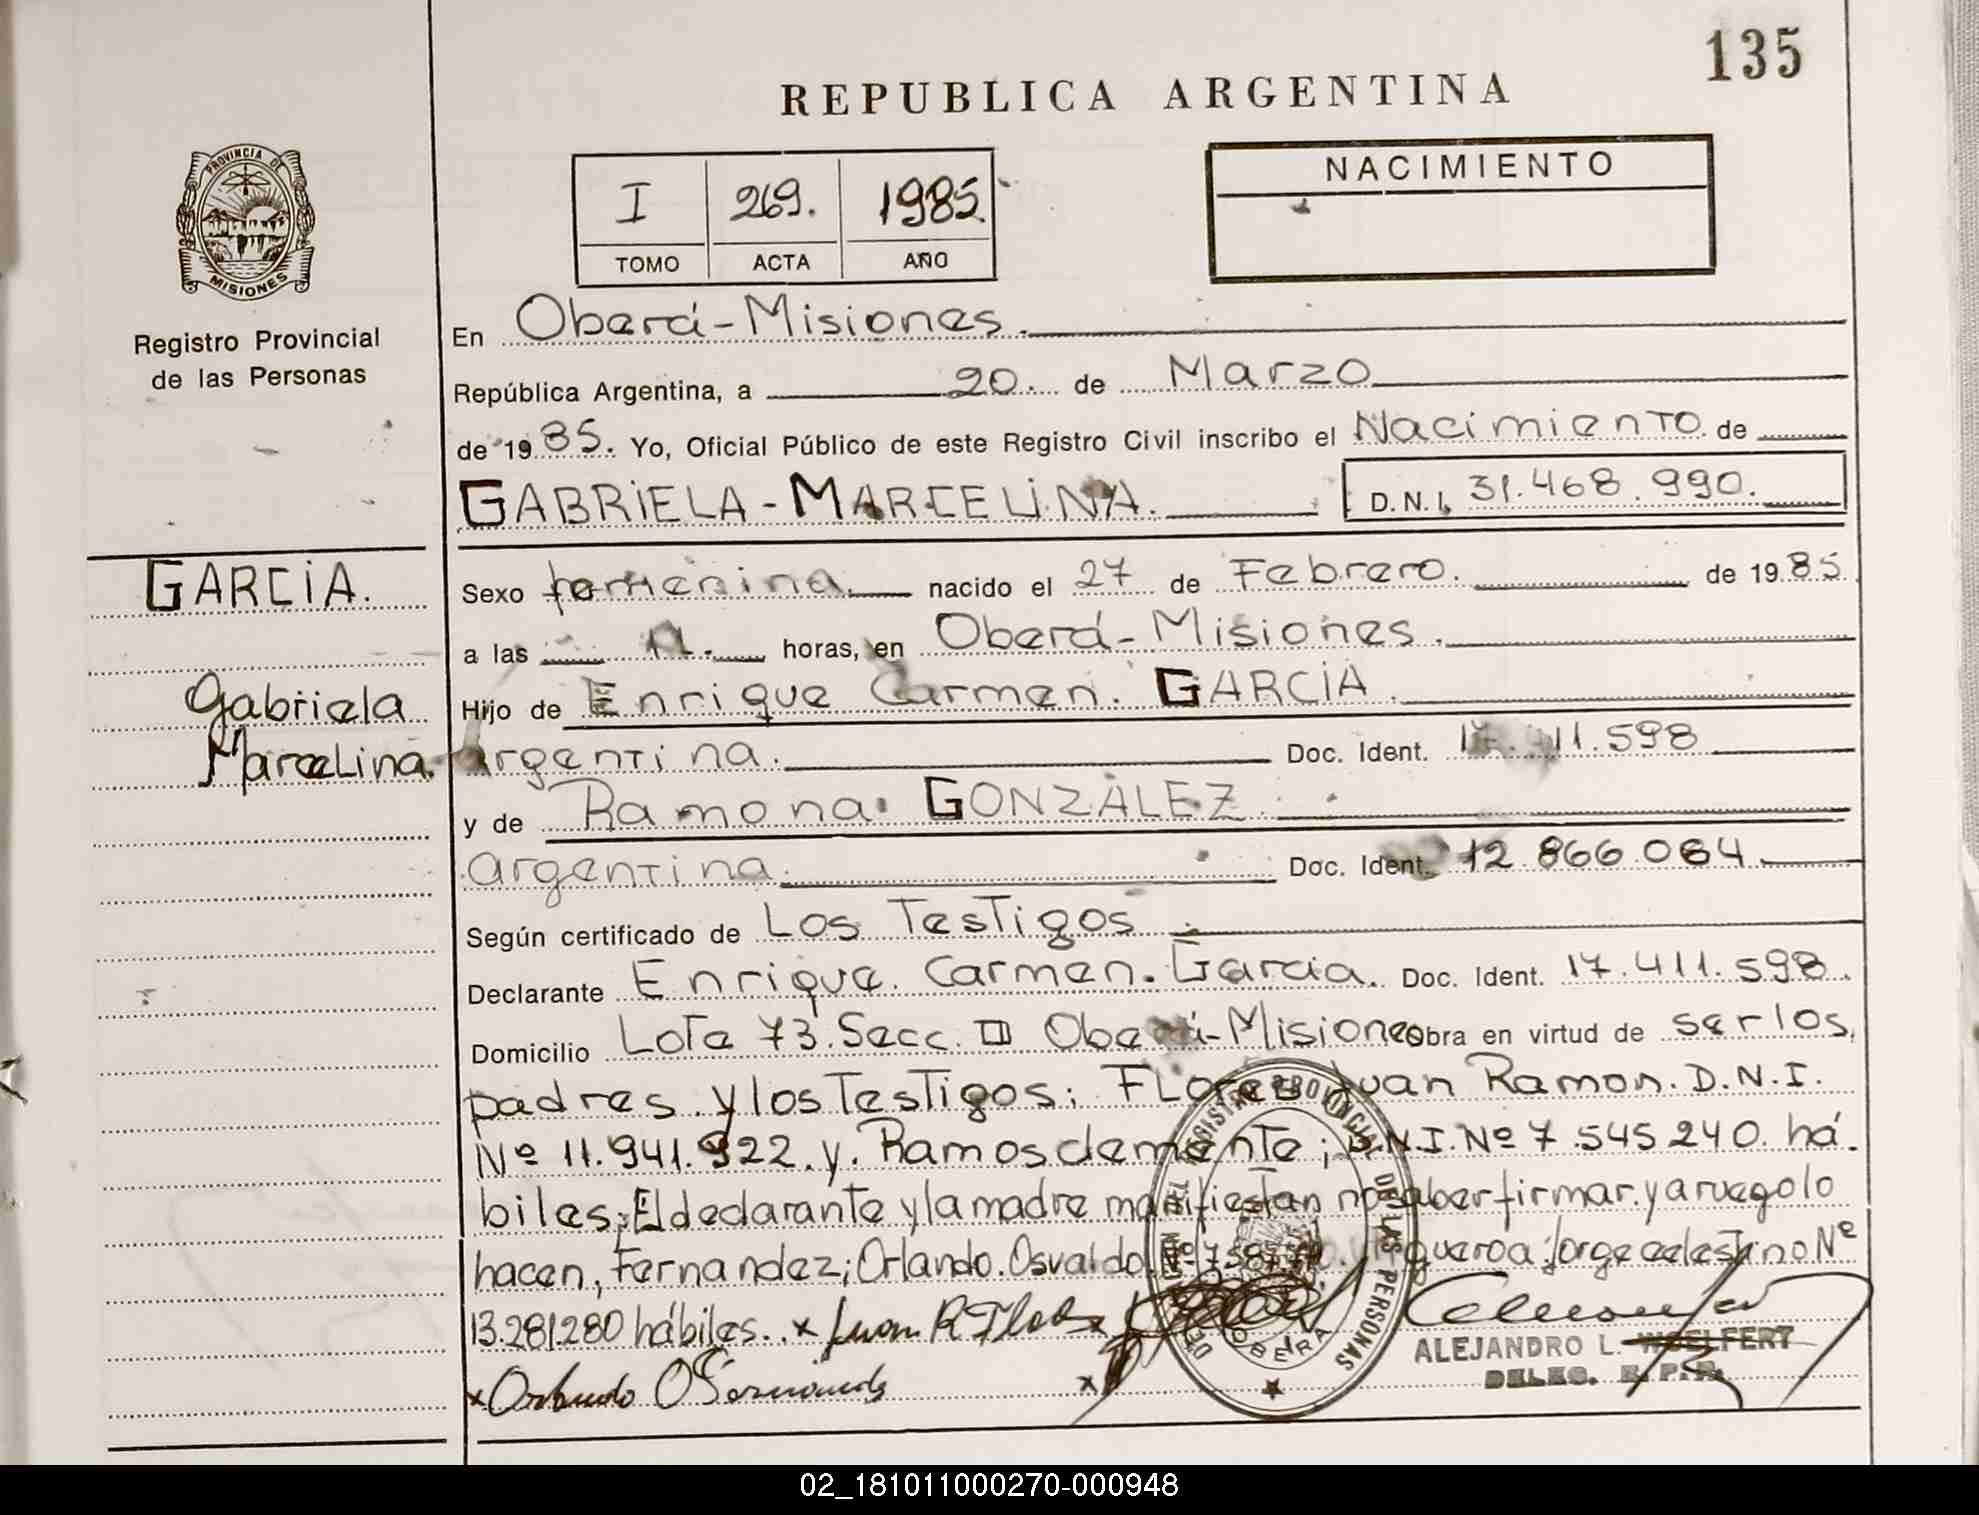 135
REPUBLICA ARGENTINA
PROVINCIA DE
MISIONES
Registro Provincial
de las Personas
I 269. 1985
TOMO ACTA AÑO
NACIMIENTO
En Oberá-Misiones.
República Argentina, a 20. de Marzo
de 1985. Yo, Oficial Público de este Registro Civil inscribo el Nacimiento de
GABRIELA-MARCELINA. D.N.I. 31.468.990.
GARCIA.
Gabriela
Marcelina.
Sexo femenina. nacido el 27 de Febrero. de 1985.
a las horas, en Oberá-Misiones.
Hijo de Enrique Carmen. GARCIA.
argentina. Doc. Ident. 11.598
y de Ramona GONZALEZ.
argentina. Doc. Ident. 12 866 064
Según certificado de Los Testigos.
Declarante Enrique. Carmen. Garcia. Doc. Ident. 17.411.598.
Domicilio Lote 73. Secc. II Oberá-Misiones obra en virtud de ser los,
padres. y los Testigos; Flores Juan Ramon. D.N.I.
Nº 11.941.922. y. Ramos clemente; D.N.I. Nº 7.545.240. há-
biles; El declarante y la madre manifiestan no saber firmar. y a ruego lo
hacen, Fernandez; Orlando. Osvaldo Jorge celestino Nº
13.281280 hábiles. x Juan R Flores x
x Orlando O Fernandez x
REGISTRO PROVINCIAL DE LAS PERSONAS
OBERA
ALEJANDRO L. WOELFERT
DELEG. R.P.P.
02_181011000270-000948